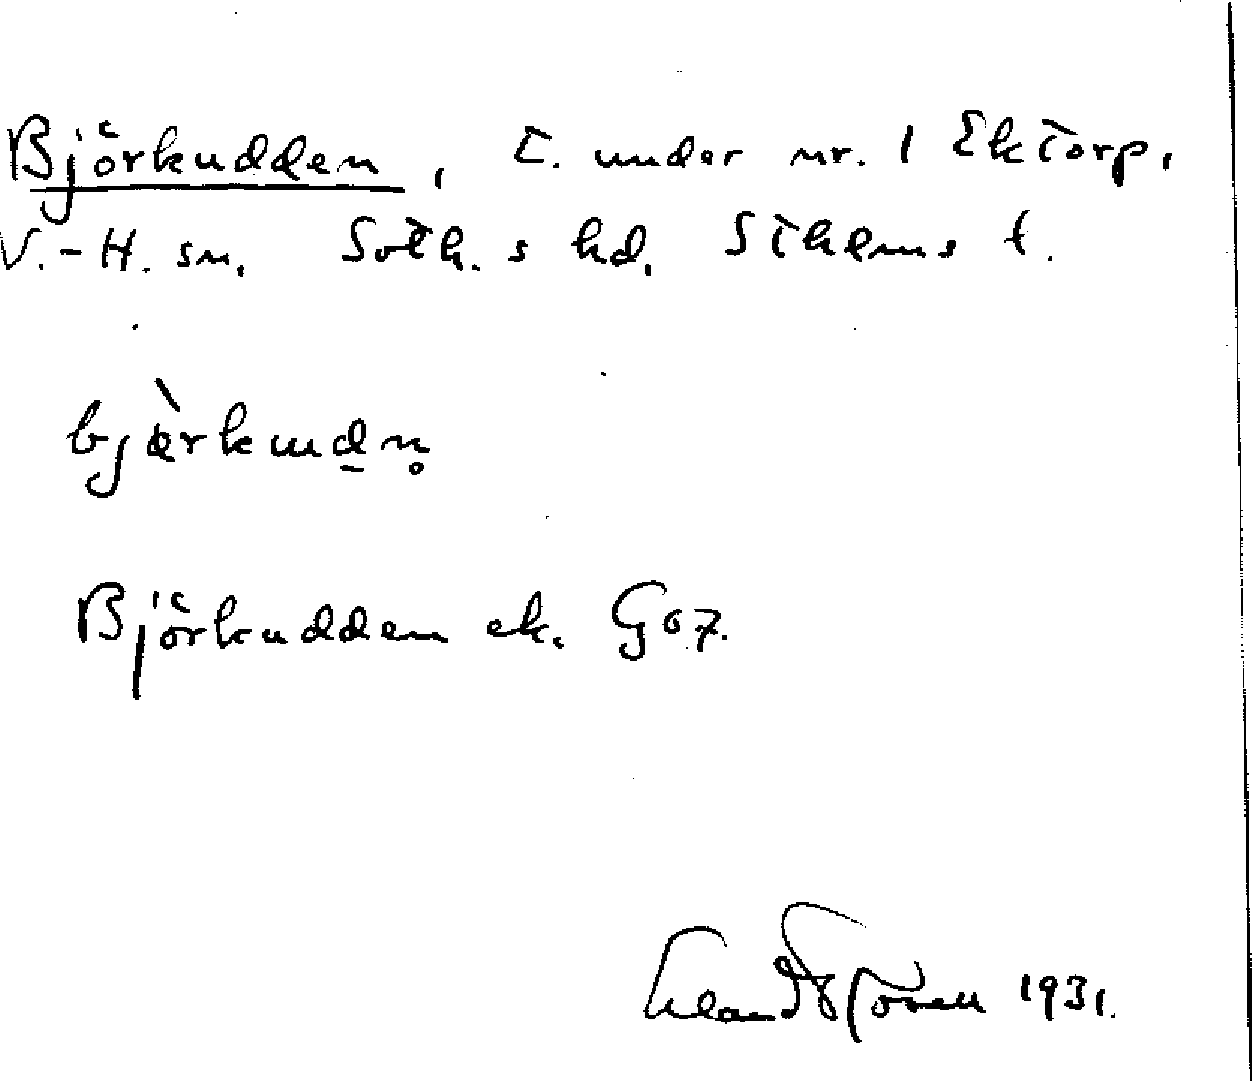 Björkudden, t. under nr. 1 Ektorp,
V.-H. sn. Soth. s hd. Sthlms l.
bjærkudn̥
Björkudden ek. G 67.
1931.